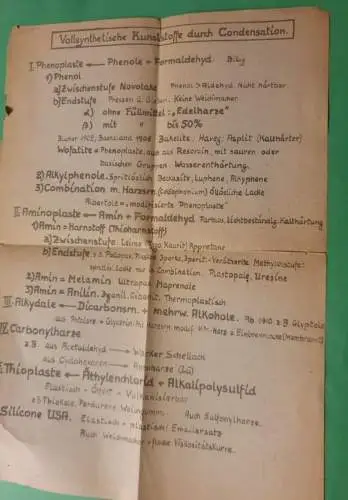 Vollsynthetische Kunststoffe durch Condensation.
I. Phenoplaste ← Phenole + Formaldehyd
1) Phenol
a) Zwischenstufe Novolake Phenol > Aldehyd. Nicht härtbar
b) Endstufe Pressen u. Keine Weichmacher
α) ohne Füllmittel: "Edelharze"
β) mit " bis 50%
1908 Bakelite, Haveg, Asplit (Kalthärter)
Wofatite = Phenoplaste, aus Resorcin, mit sauren oder
basischen Gruppen. Wasserenthärtung.
2) Alkylphenole. Spritlöslich Beckasite, Luphene, Alkyphene
3) Combination m. Harzsrn. (Colophonium) Öllösliche Lacke
Albertole = "modifizierte Phenoplaste"
II. Aminoplaste ← Amin + Formaldehyd Farblos, Lichtbeständig, Kalthärtung
1) Amin = Harnstoff (Thioharnstoff)
a) Zwischenstufe: Leime Kaurit) Appretane
b) Endstufe z.B. Pollopas,
Lacke nur in Combination. Plastopale, Uresine
2) Amin = Melamin Ultrapas Maprenale
3) Amin = Anilin. Cibanit. Thermoplastisch
III. Alkydale ← Dicarbonsrn. + mehrw. Alkohole. Ab 1910 z.B. Glyptale
aus Phtalsre + Glycerin.
IV. Carbonylharze
z.B. aus Acetaldehyd → Wacker Schellack
aus Cyclohexanon →
Thioplaste ← Äthylenchlorid + Alkalipolysulfid
Elastisch - Ölfest - Vulkanisierbar
z.B. Thiokole, Perdurene Auch Sulfonylharze.
Silicone USA. Elastisch + plastisch / Emailersatz
Auch Weichmacher + flache Viskositätskurve.